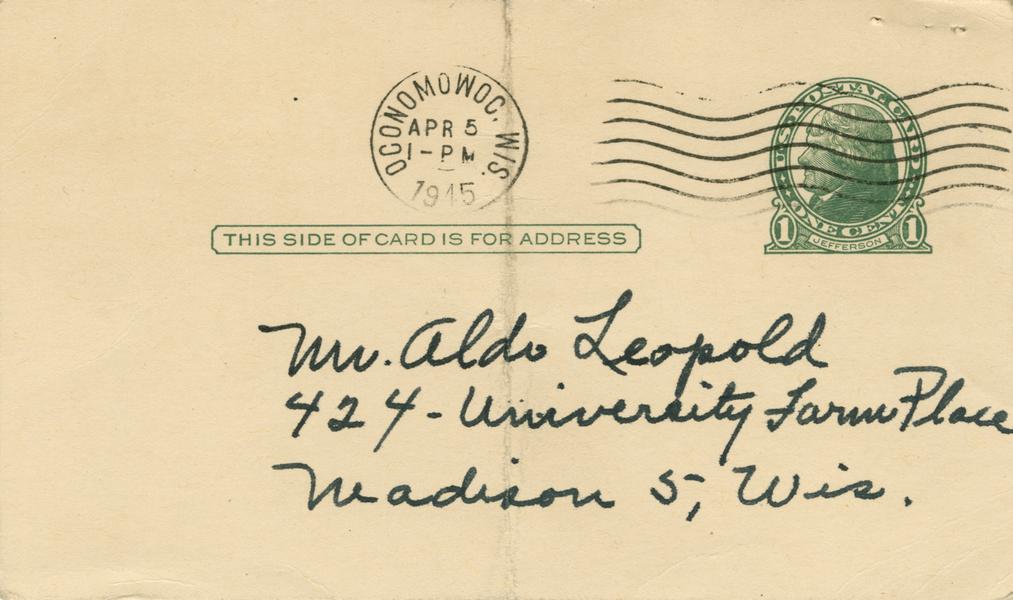 OCONOMOWOC, WIS.
APR 5
1 - PM
1945
U.S. POSTAL CARD
ONE CENT
1 JEFFERSON 1
THIS SIDE OF CARD IS FOR ADDRESS
Mr. Aldo Leopold
424 - University Farm Place
Madison 5, Wis.